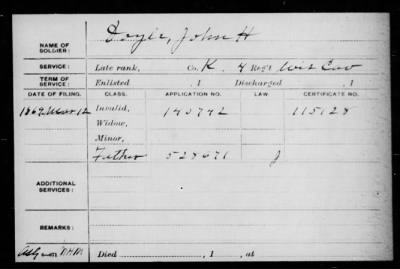 NAME OF SOLDIER: Doyle, John H
SERVICE: Late rank, Co. K, 4 Reg't Wis Cav
TERM OF SERVICE: Enlisted , 1 Discharged , 1
DATE OF FILING. CLASS. APPLICATION NO. LAW. CERTIFICATE NO.
1869 Mar 12 Invalid, 143742 115128
Widow,
Minor,
Father 528671 J
ADDITIONAL SERVICES:
REMARKS:
Died , 1 , at